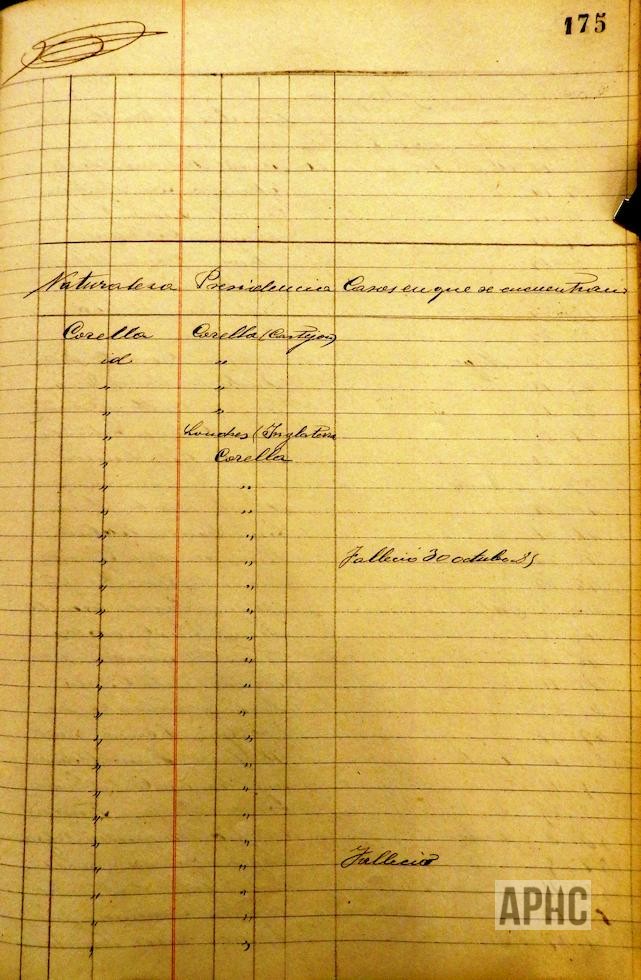 175
Naturaleza Presidencia Casos en que se encuentran
Corella Corella (Castejon)
id "
" "
" "
" Londres (Inglaterra
" Corella
" "
" "
" "
" " Falleció 30 octubre
" "
" "
" "
" "
" "
" "
" "
" "
" "
" "
" "
" "
" " Falleció
" "
" "
" "
APHC